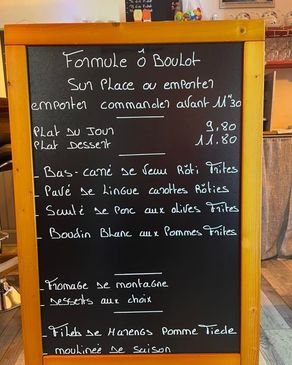 Formule Ô Boulot
Sur Place ou emporter
emporter commander avant 11h30
Plat du Jour 9,80
Plat Dessert 11.80
- Bas-carré de Veau Rôti Frites
- Pavé de Lingue carottes Rôties
- Sauté de Porc aux olives Frites
- Boudin Blanc aux Pommes Frites
- Fromage de montagne
- Desserts aux choix
- Filets de Harengs Pomme Tiede
- moulinée de saison